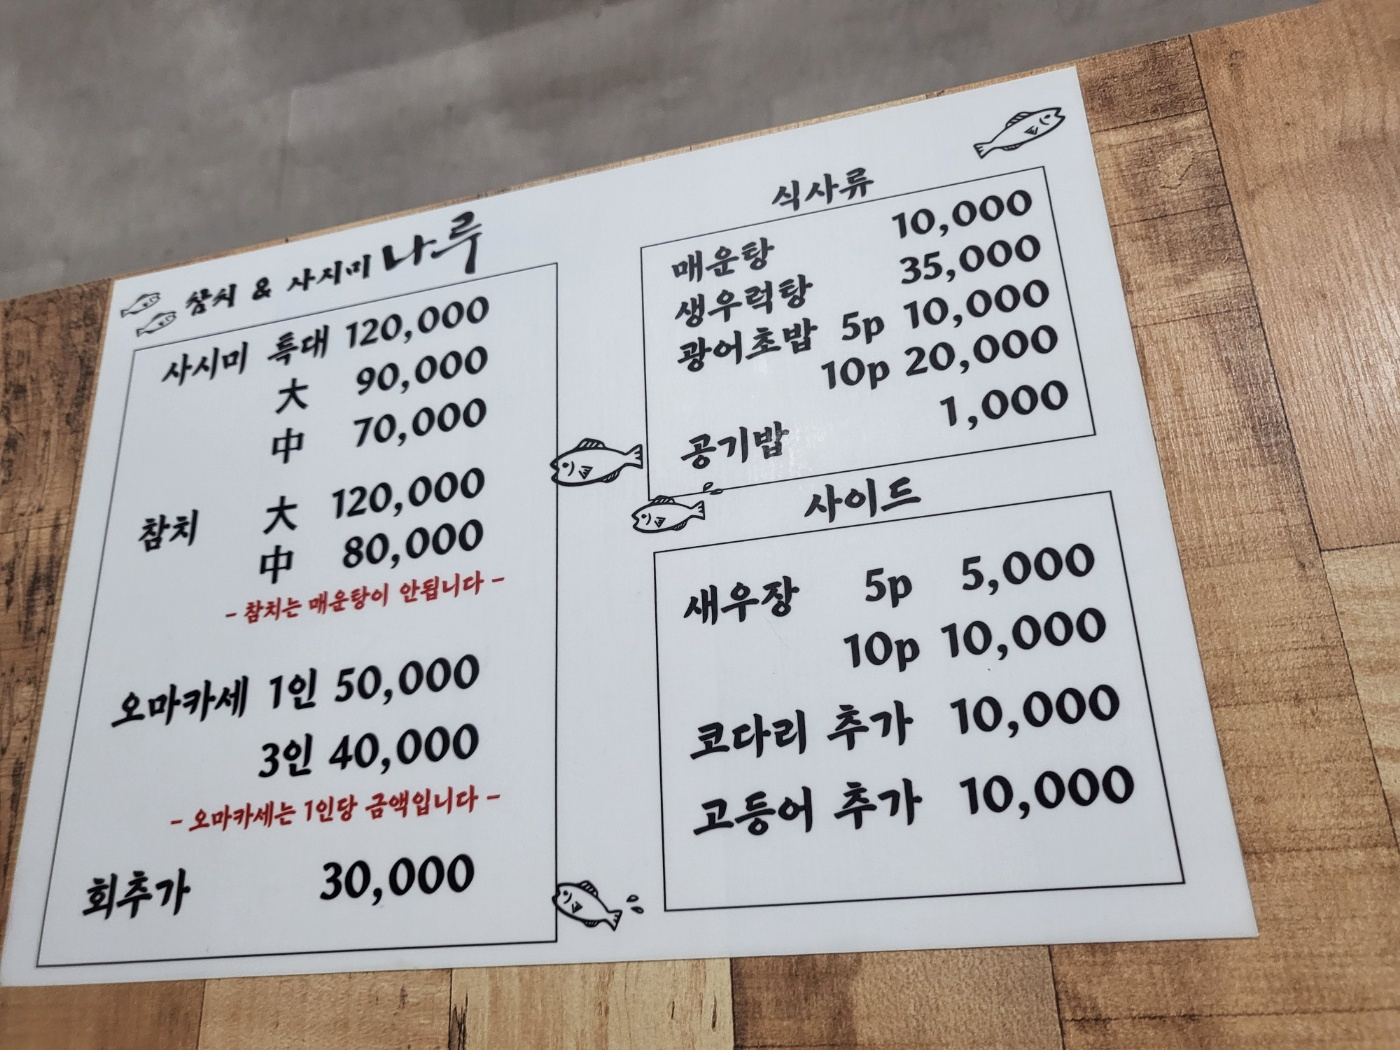 참치 & 사시미 나루
사시미 특대 120,000
大 90,000
中 70,000
참치 大 120,000
中 80,000
- 참치는 매운탕이 안됩니다 -
오마카세 1인 50,000
3인 40,000
- 오마카세는 1인당 금액입니다 -
회추가 30,000
식사류
매운탕 10,000
생우럭탕 35,000
광어초밥 5p 10,000
10p 20,000
공기밥 1,000
사이드
새우장 5p 5,000
10p 10,000
코다리 추가 10,000
고등어 추가 10,000